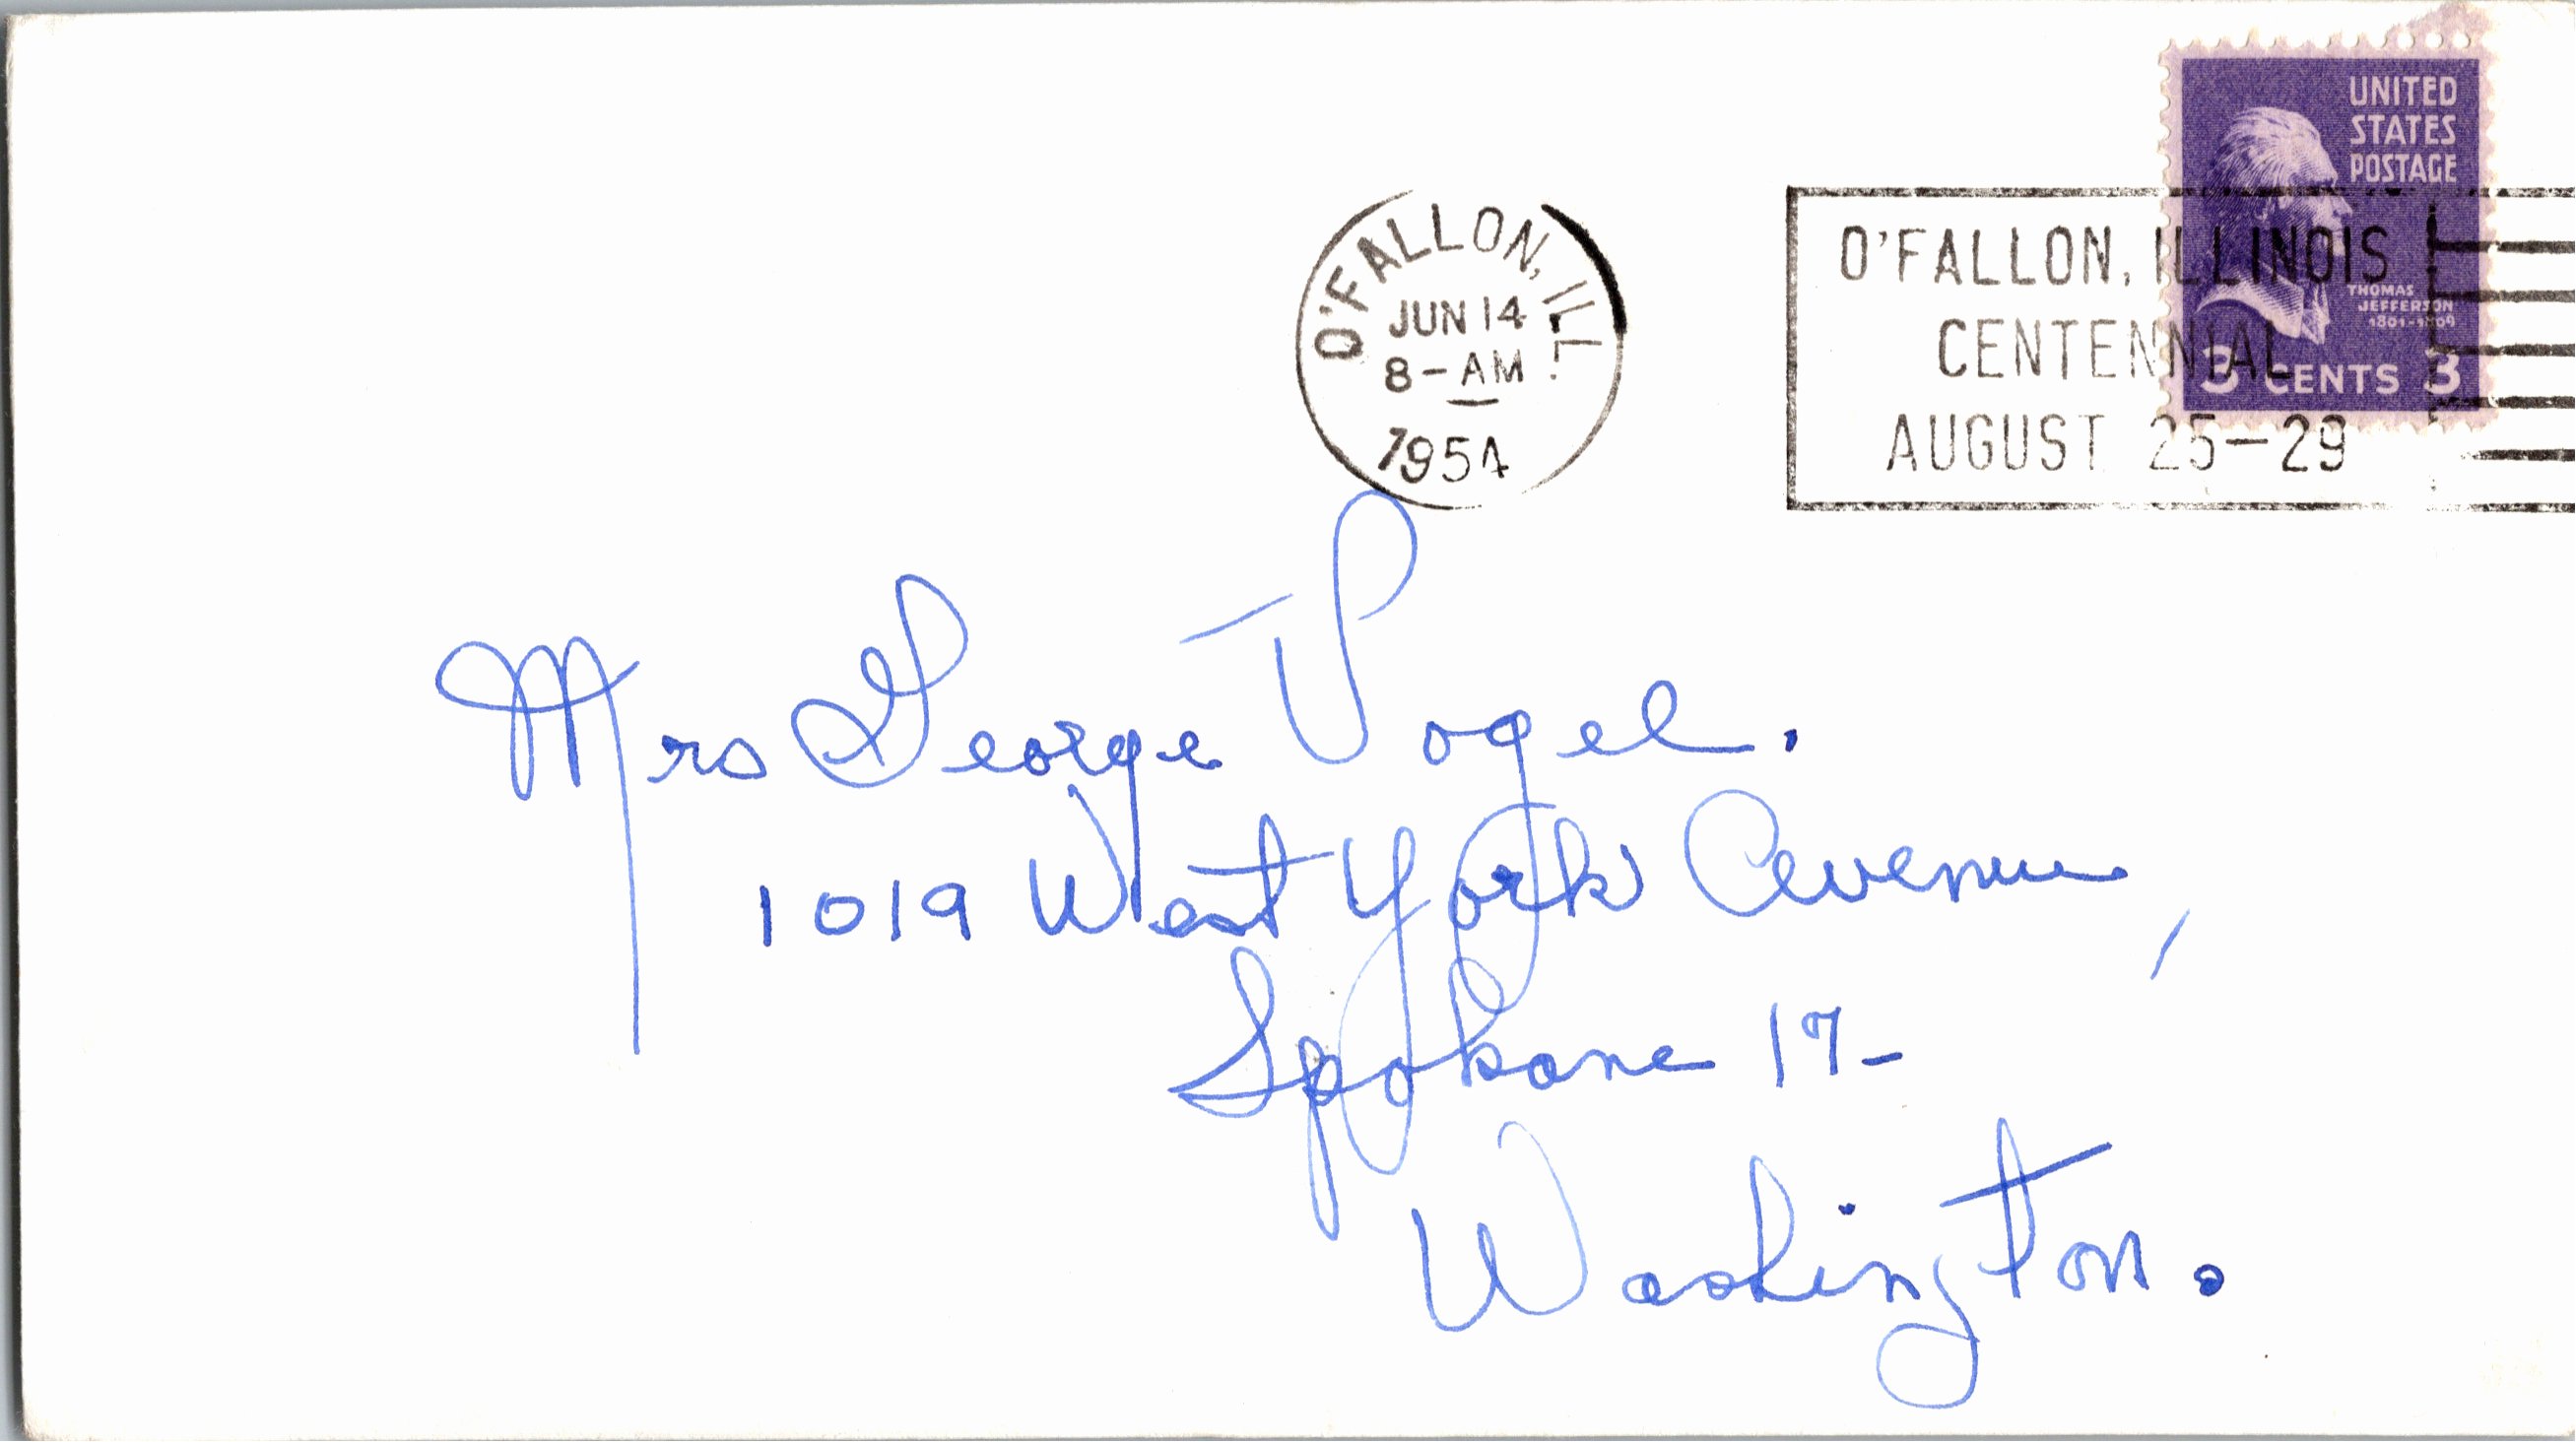 UNITED
STATES
POSTAGE
THOMAS
JEFFERSON
1801-1809
3 CENTS 3
O'FALLON, ILL.
JUN 14
8-AM
1954
O'FALLON, ILLINOIS
CENTENNIAL
AUGUST 25-29
Mrs George Vogel.
1019 West York Avenue,
Spokane 17-
Washington.